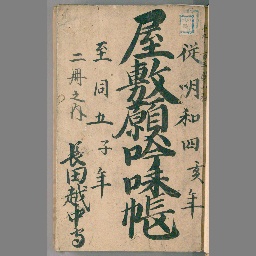 従明和四亥年
屋敷願吟味帳
至同五子年
二冊之内
長田越中守